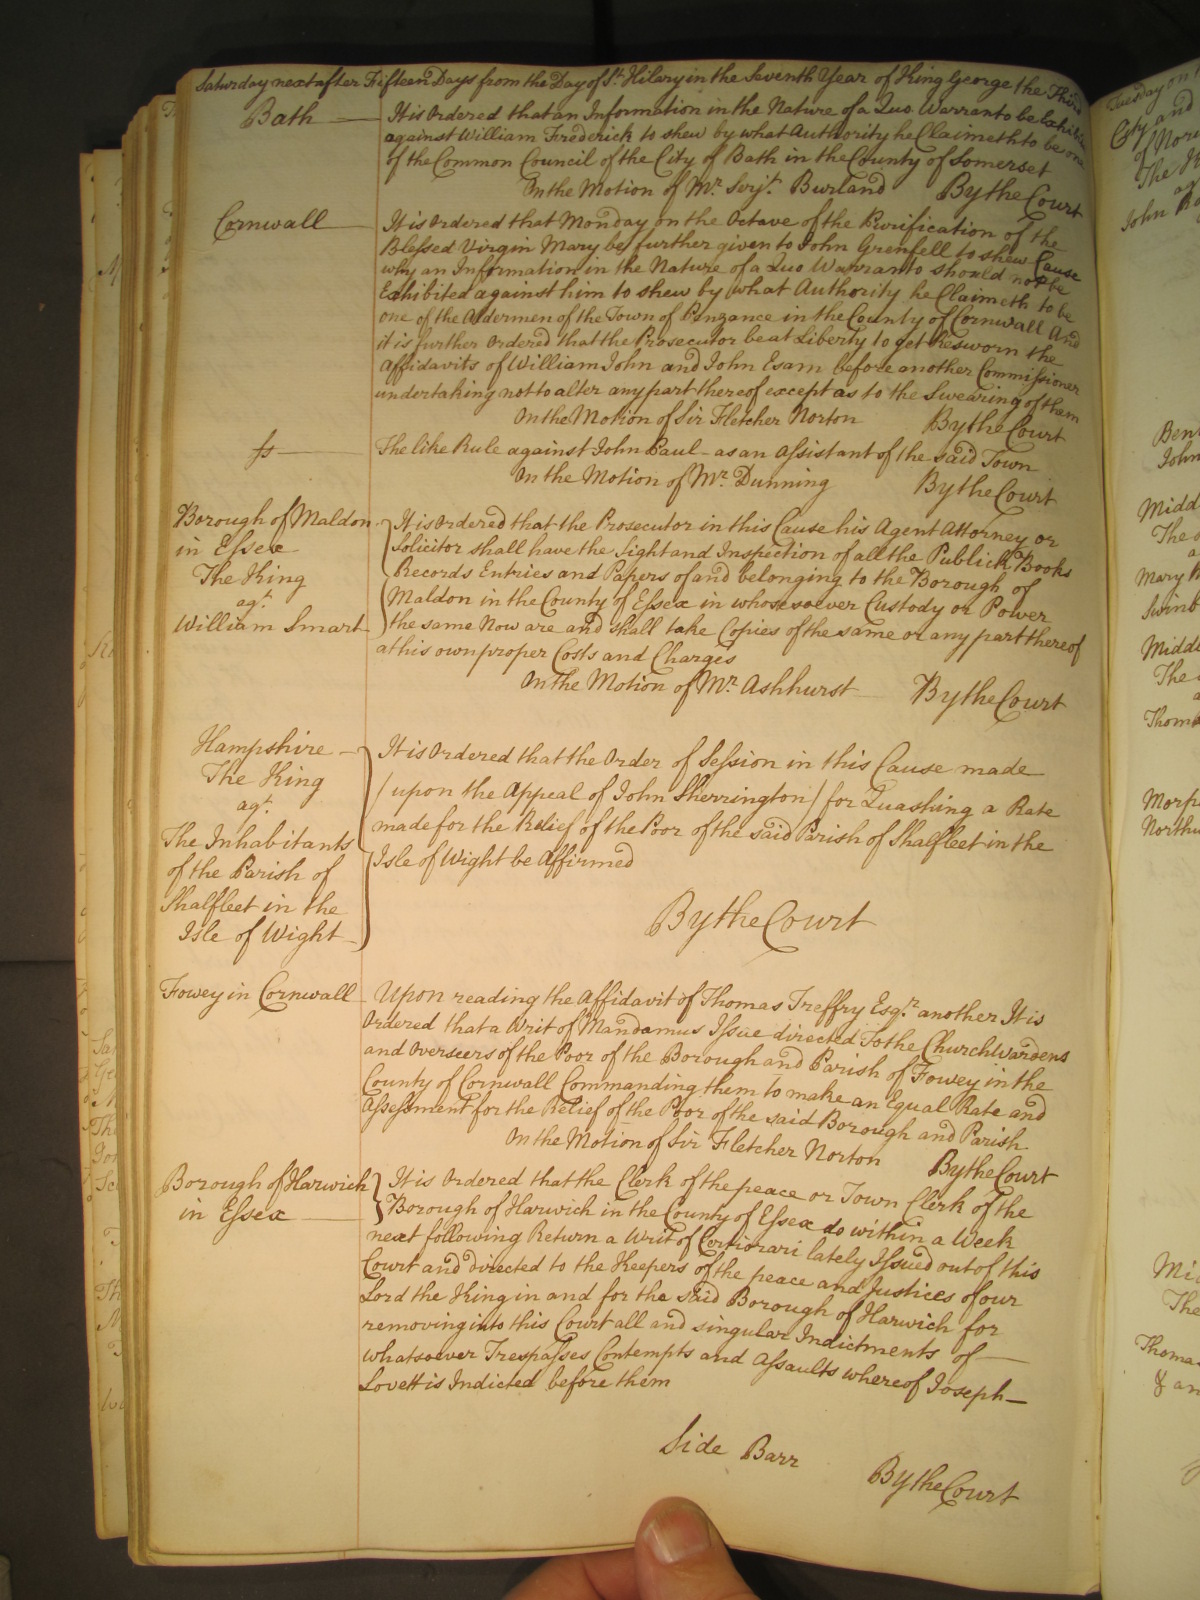 Saturday next after Fifteen Days from the Day of St. Hilary in the Seventh Year of King George the Third
Bath
It is Ordered that an Information in the Nature of a Quo Warranto be Exhibited
against William Frederick to shew by what Authority he Claimeth to be one
of the Common Council of the City of Bath in the County of Somerset
On the Motion of Mr. Serjt. Burland By the Court
Cornwall
It is Ordered that Monday on the Octave of the Purification of the
Blessed Virgin Mary be further given to John Grenfell to shew Cause
why an Information in the Nature of a Quo Warranto should not be
Exhibited against him to shew by what Authority he Claimeth to be
one of the Aldermen of the Town of Penzance in the County of Cornwall And
it is further Ordered that the Prosecutor be at Liberty to get Resworn the
Affidavits of William John and John Esam before another Commissioner
undertaking not to alter any part thereof except as to the Swearing of them
On the Motion of Sir Fletcher Norton By the Court
ss
The like Rule against John Paul as an Assistant of the said Town
On the Motion of Mr. Dunning By the Court
Borough of Maldon
in Essex
The King
agt.
William Smart
It is Ordered that the Prosecutor in this Cause his Agent Attorney or
Solicitor shall have the Sight and Inspection of all the Publick Books
Records Entries and Papers of and belonging to the Borough of
Maldon in the County of Essex in whosesoever Custody or Power
the same Now are and shall take Copies of the same or any part thereof
at his own proper Costs and Charges
On the Motion of Mr. Ashhurst By the Court
Hampshire
The King
agt.
The Inhabitants
of the Parish of
Shalfleet in the
Isle of Wight
It is Ordered that the Order of Session in this Cause made
/ upon the Appeal of John Sherrington / for Quashing a Rate
made for the Relief of the Poor of the said Parish of Shalfleet in the
Isle of Wight be Affirmed
By the Court
Fowey in Cornwall
Upon reading the Affidavit of Thomas Treffry Esqr. another It is
Ordered that a Writ of Mandamus Issue directed To the Church Wardens
and Overseers of the Poor of the Borough and Parish of Fowey in the
County of Cornwall Commanding them to make an Equal Rate and
Assessment for the Relief of the Poor of the said Borough and Parish
On the Motion of Sir Fletcher Norton By the Court
Borough of Harwich
in Essex
It is Ordered that the Clerk of the peace or Town Clerk of the
Borough of Harwich in the County of Essex do within a Week
next following Return a Writ of Certiorari lately Issued out of this
Court and directed to the Keepers of the peace and Justices of our
Lord the King in and for the said Borough of Harwich for
removing into this Court all and singular Indictments of
whatsoever Trespasses Contempts and Assaults whereof Joseph
Lovett is Indicted before them
Side Barr By the Court
Tuesday on
City and
The
John
Midd
The
Mary
Midd
The
Thom
Thomas
& an